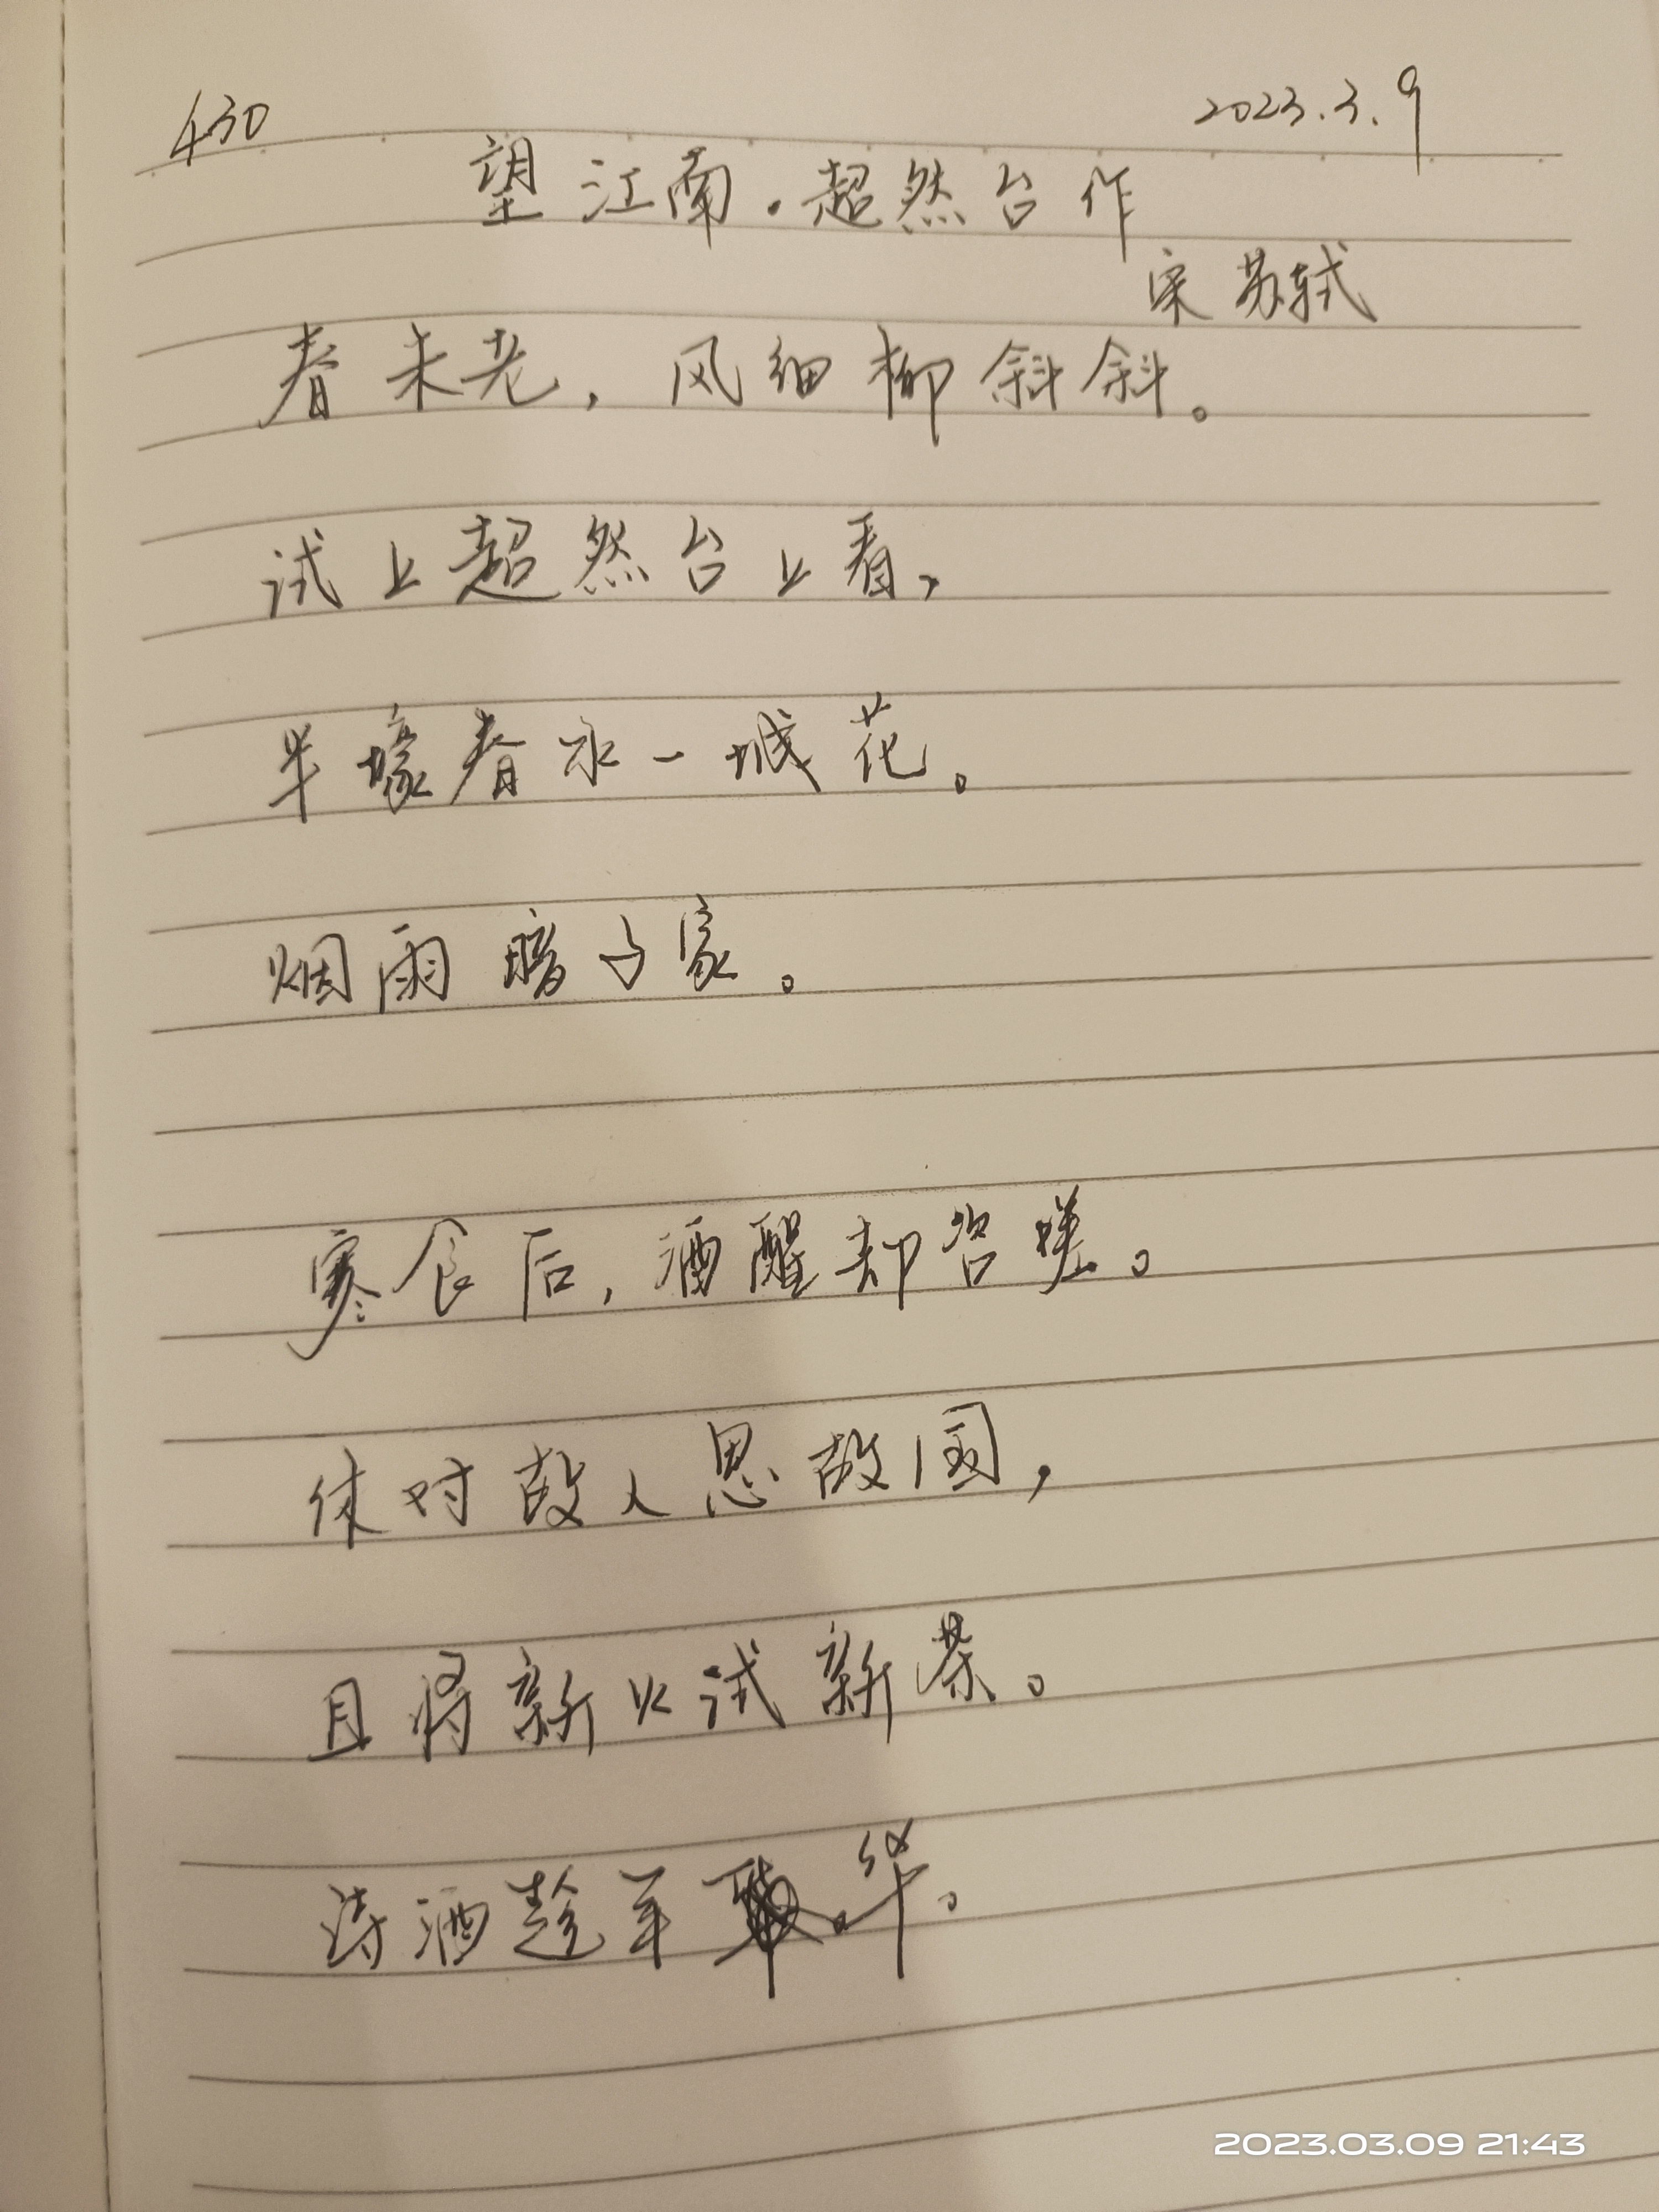 430
2023.3.9
望江南.超然台作
宋 苏轼
春未老，风细柳斜斜。
试上超然台上看，
半壕春水一城花。
烟雨暗千家。
寒食后，酒醒却咨嗟。
休对故人思故国，
且将新火试新茶。
诗酒趁年华。
2023.03.09 21:43